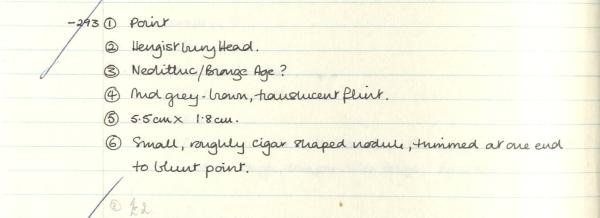 -293 ① Point
② Hengistbury Head.
③ Neolithic/Bronze Age?
④ Mid grey-brown, translucent flint.
⑤ 5.5cm x 1.8cm.
⑥ Small, roughly cigar shaped nodule, trimmed at one end
to blunt point.
② £2